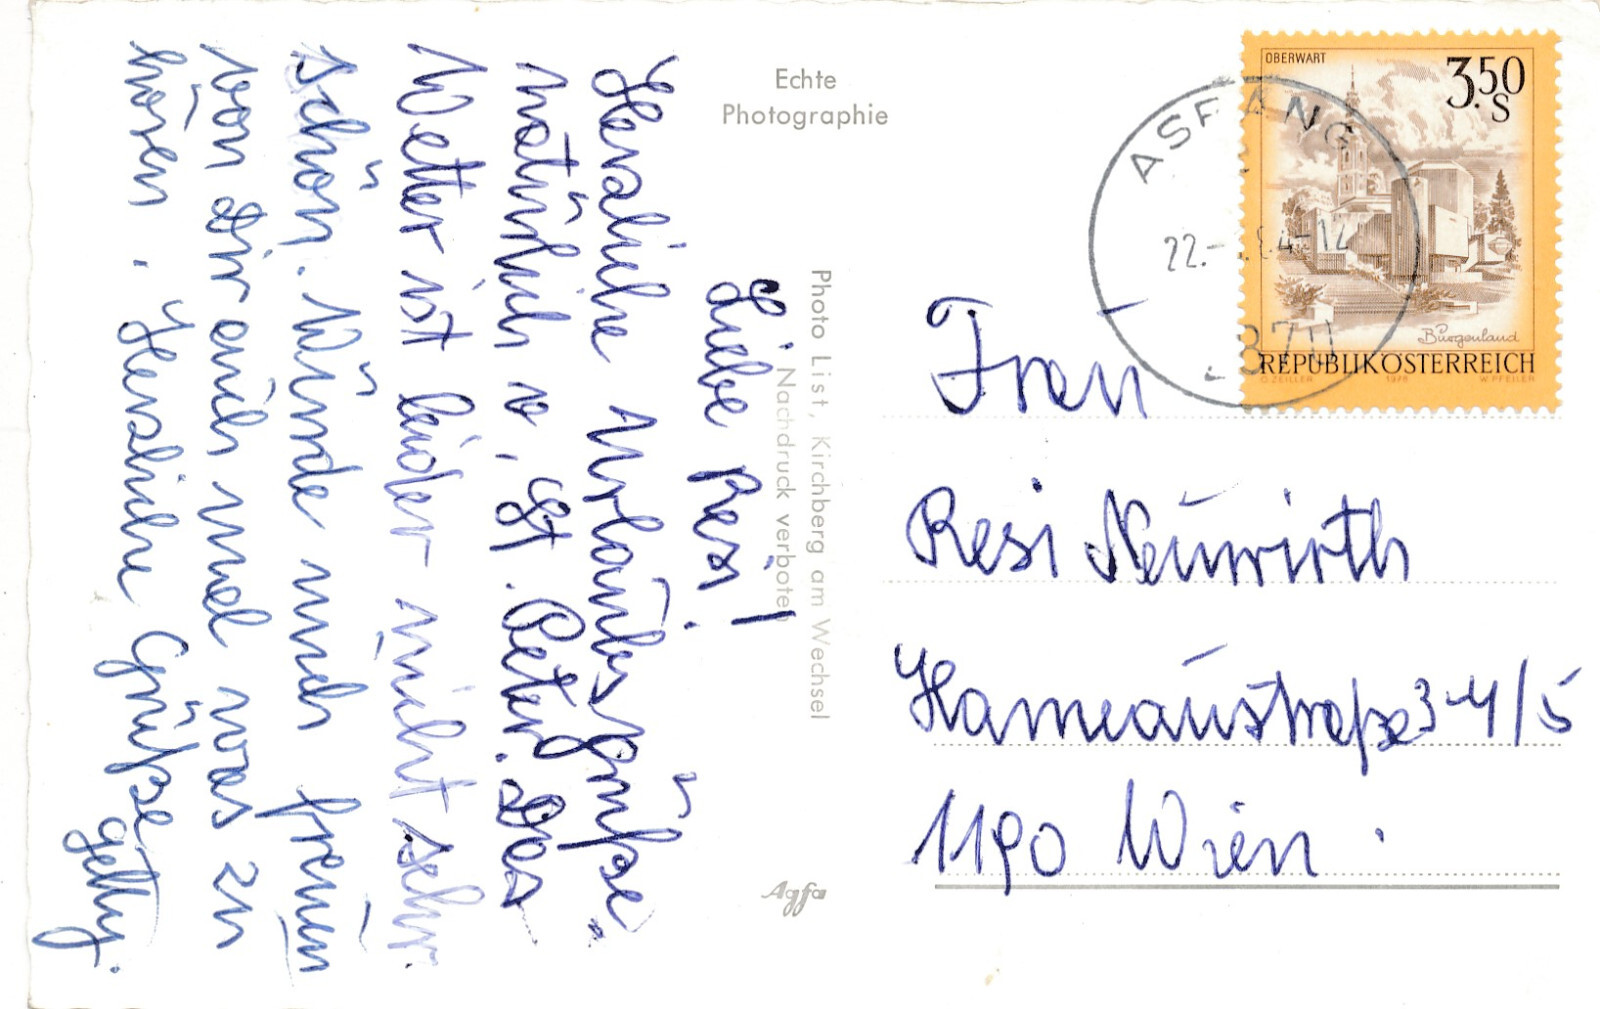 Liebe Resi!
Herzliche Urlaubsgrüße
natürlich v. St. Peter. Das
Wetter ist leider nicht sehr
schön. Würde mich freuen
von Dir auch mal was zu
hören. Herzliche Grüße
Echte
Photographie
Photo List, Kirchberg am Wechsel
Nachdruck verboten
Agfa
OBERWART
3.50
S
Burgenland
REPUBLIK ÖSTERREICH
O. ZEILLER 1978 W. PFEILER
ASPANG
22.
2870
Frau
Resi Neuwirth
Hameaustraße 34/5
1190 Wien.